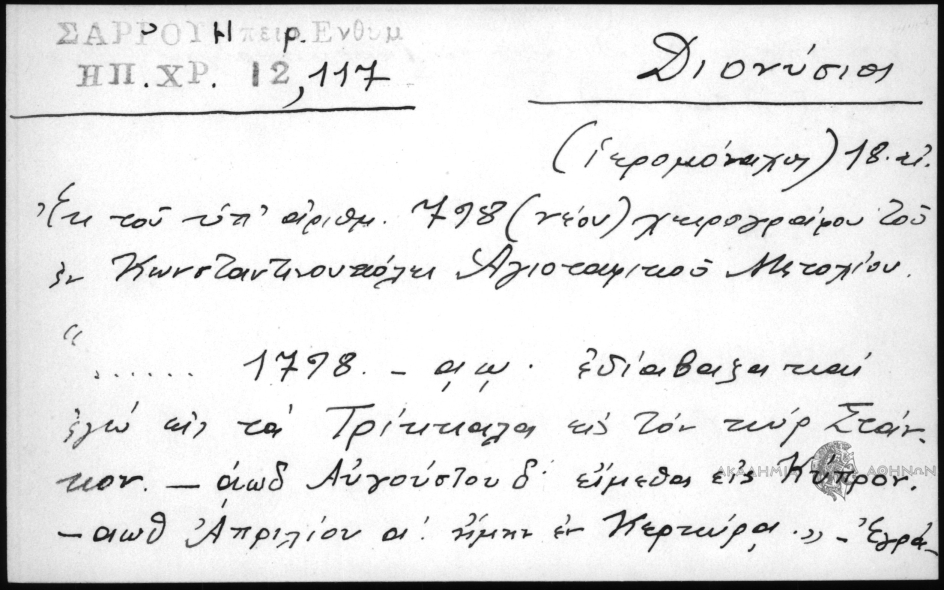 ΣΑΡΡΟΥ Ηπειρ. Ενθυμ
ΗΠ. ΧΡ. 12, 117
Διονύσιος
(ἱερομόναχος) 18. αἰ.
Ἐκ τοῦ ὑπ' ἀριθμ. 798 (νέου) χειρογράφου τοῦ
ἐν Κωνσταντινουπόλει Ἁγιοταφιτικοῦ Μετοχίου.
"
...... 1798. – αῳ. ἐδιάβαζα καί
ἐγώ εἰς τά Τρίκκαλα εἰς τόν κύρ Στάν-
κον. – ἀωδ Αὐγούστου δ' εἴμεθα εἰς Κύπρον.
– αωθ Ἀπριλίου α' ἤμην ἐν Κερκύρᾳ." – Ἐγρά-
ΑΚΑΔΗΜΙΑ ΑΘΗΝΩΝ